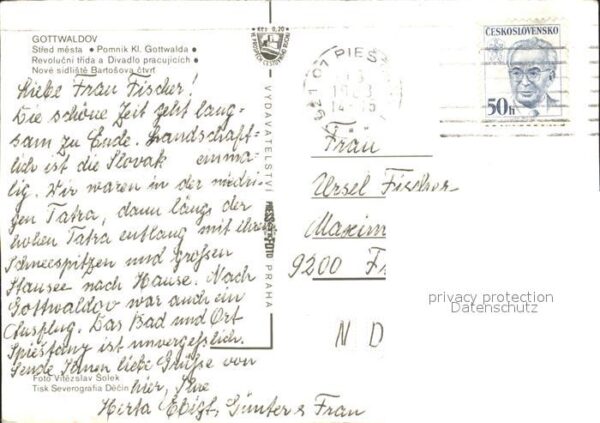 GOTTWALDOV
Střed města • Pomník Kl. Gottwalda •
Revoluční třída a Divadlo pracujících •
Nové sídliště Bartošova čtvrť
Kčs 0,20
VYDAVATELSTVÍ PRESSFOTO PRAHA
921 01 PIEŠ
1983
ČESKOSLOVENSKO
50h
Liebe Frau Fischer!
Die schöne Zeit geht lang-
sam zu Ende. Landschaft-
lich ist die Slovak einma-
lig. Wir waren in der niedri-
gen Tatra, dann längs der
hohen Tatra entlang mit ihren
Schneespitzen und großen
Stausee nach Hause. Nach
Gottwaldov war auch ein
Ausflug. Das Bad und Ort
Spiestany ist unvergeßlich.
Sende Ihnen liebe Grüße von
hier, Ihre
Herta Günter & Frau
Foto Vítězslav Šolek
Tisk Severografia Děčín
Frau
Ursel Fischer
Maxim
9200 F
N D
privacy protection
Datenschutz